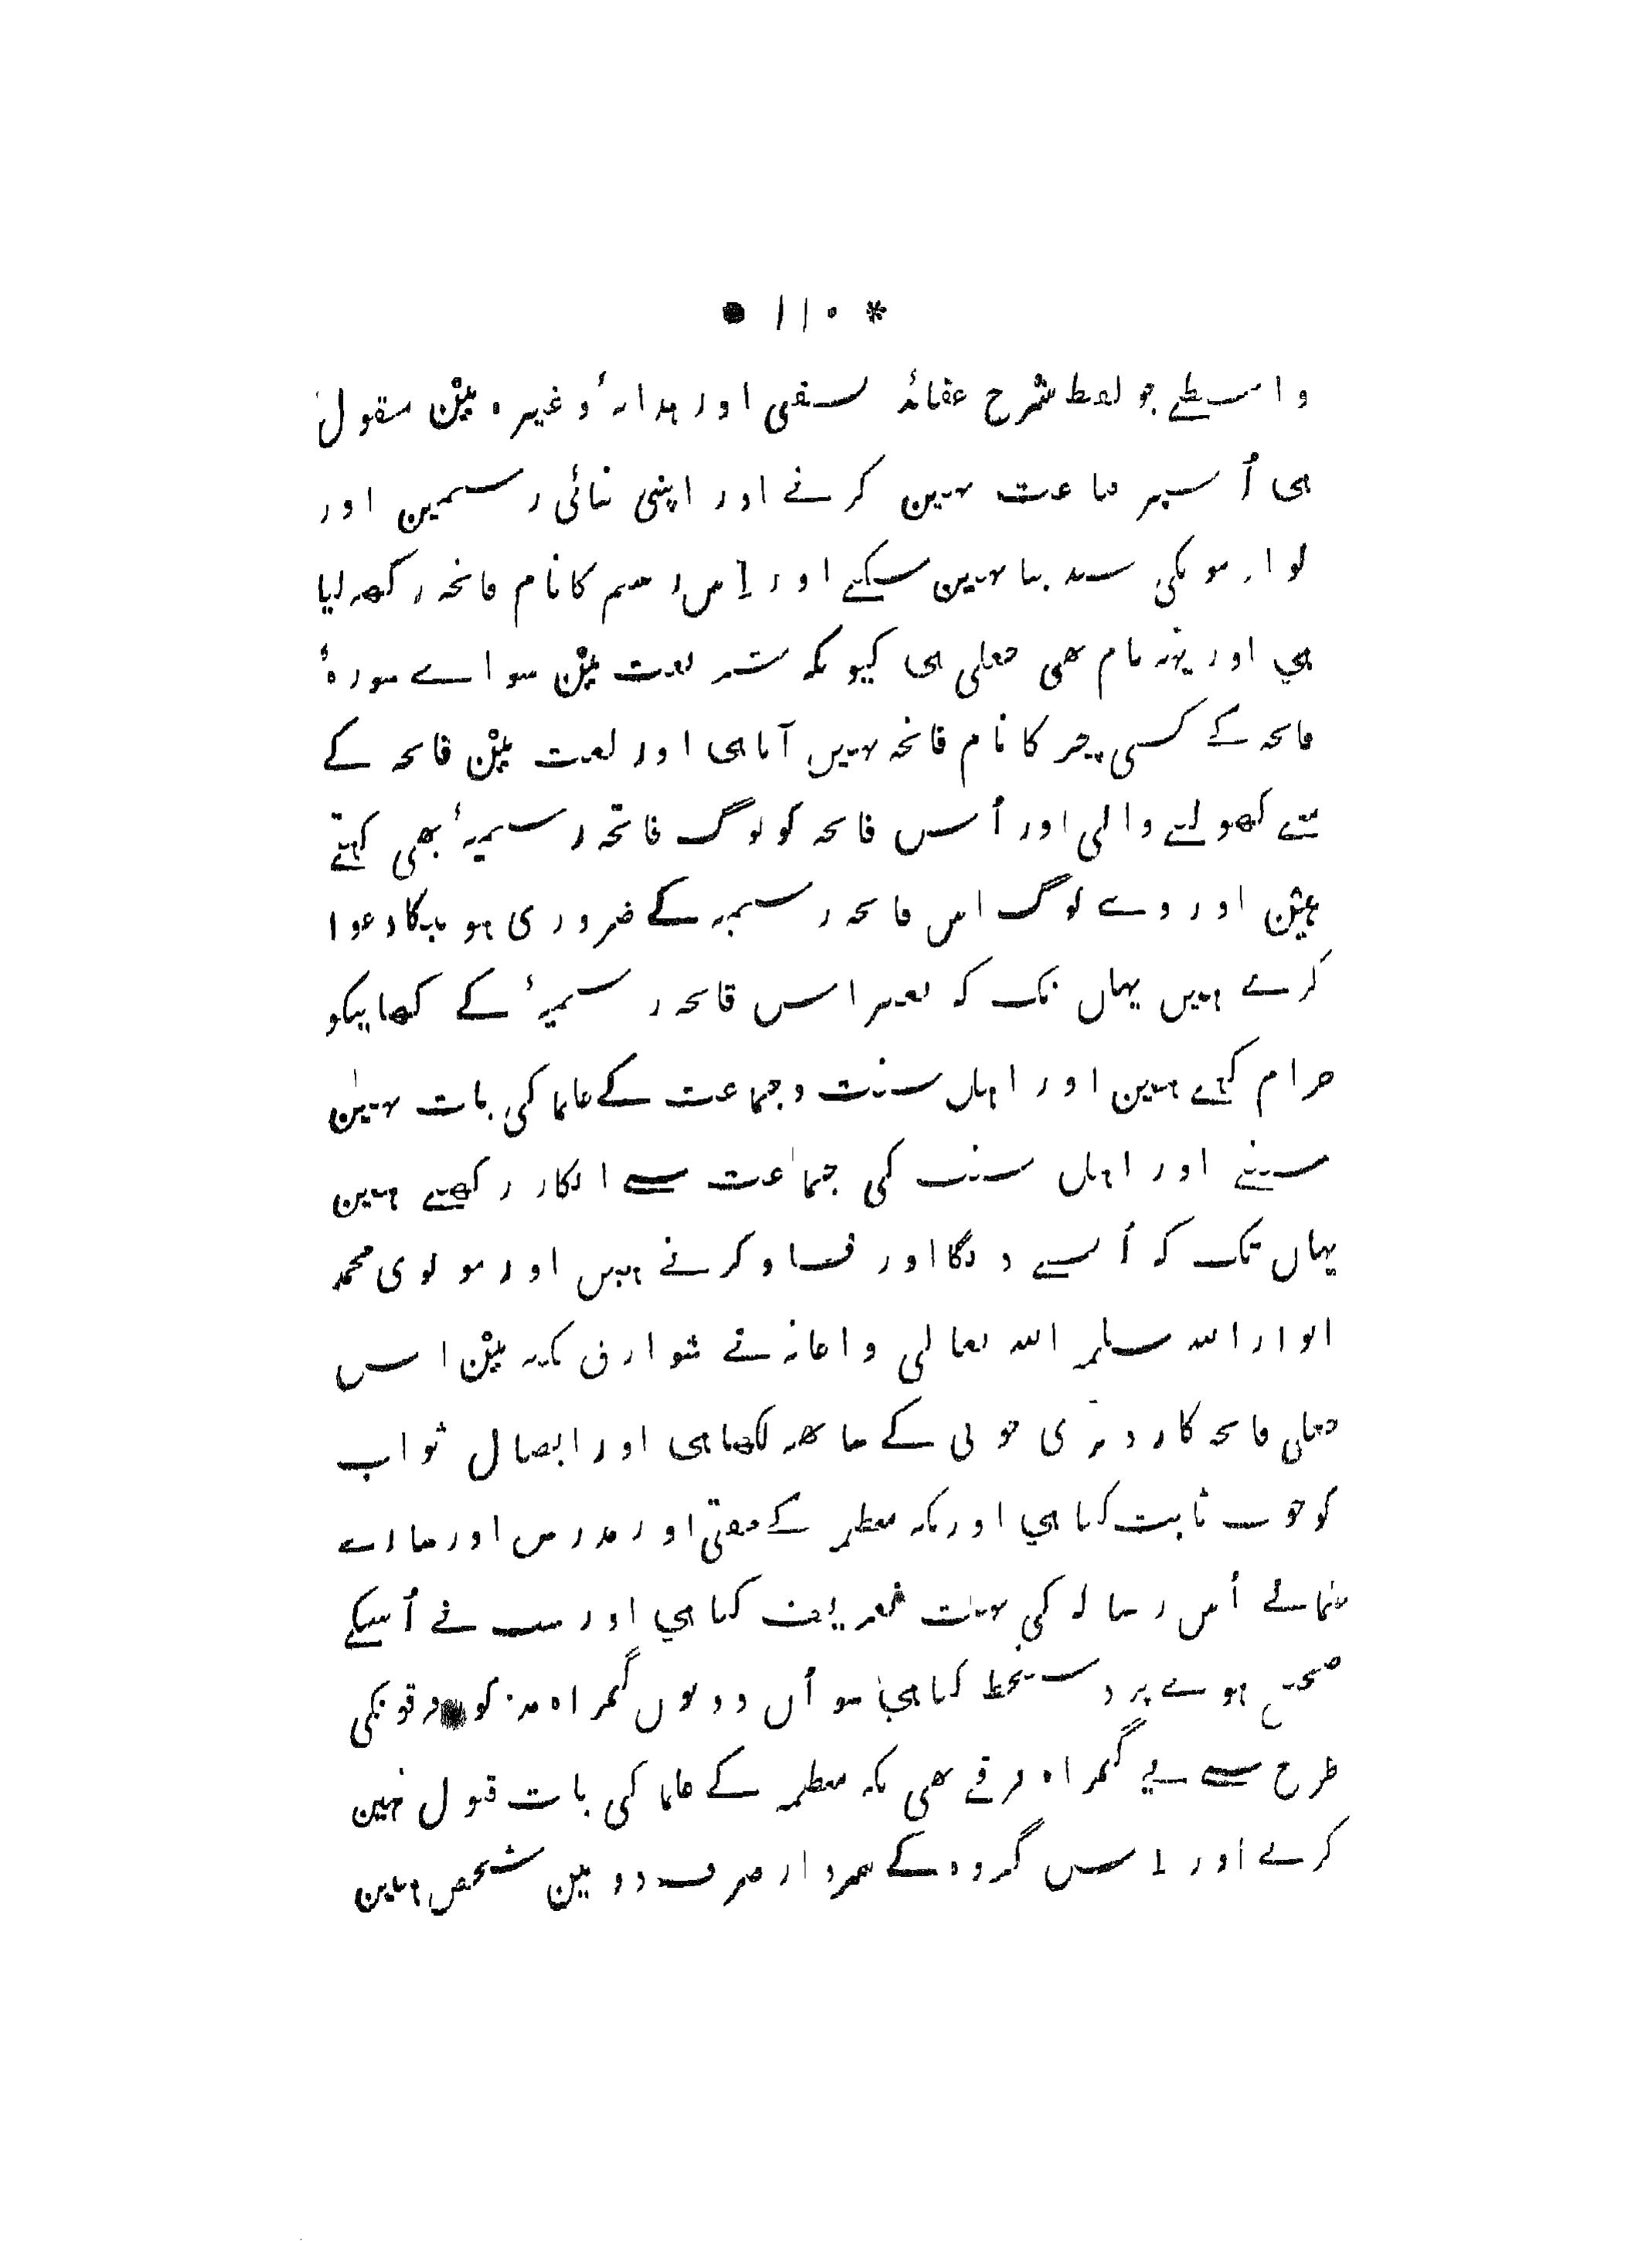 * ۱۱۰ *
واسطے جو لفظ شرح عقائد نسفی اور ہدایہ وغیرہ مین منقول
ہی اُسپر قناعت نہین کرتے اور اپنی بنائی رسمین اور
لوازمونکی سند بنا نہین سکتے اور اِس رسم کا نام فاتحہ رکھہ لیا
ہی اور یہہ نام بھی جعلی ہی کیونکہ شریعت مین سوائے سورۂ
فاتحہ کے کسی چیز کا نام فاتحہ نہین آیا ہی اور لغت مین فاتحہ کے
معنے کھولنے والی اور اُس فاتحہ کو لوگ فاتحہ رسمیہ بھی کہتے
ہین اور وے لوگ اس فاتحہ رسمیہ کے ضروری ہونیکا دعوا
کرتے ہین یہاں تک کہ بغیر اس فاتحہ رسمیہ کے کھانیکو
حرام کہتے ہین اور اہل سنت و جماعت کے علما کی بات نہین
سنتے اور اہل سنت کی جماعت سے انکار رکھتے ہین
یہاں تک کہ اُنسے دنگا اور فساد کرتے ہین اور مولوی محمد
انوار اللہ سلمہ اللہ تعالی واعانہ نے شوارق مکیہ مین اس
جعلی فاتحہ کا رد بڑی خوبی کے ساتھہ لکھا ہی اور ایصال ثواب
کو خوب ثابت کیا ہی اور مکہ معظمہ کے مفتی اور مدرس اور سارے
علمائے اُس رسالہ کی بہت تعریف کیا ہی اور سب نے اُسکے
صحیح ہونے پر دستخط کیا ہی سو اُن دونوں گمراہ مذکور فرقونکی
طرح سے یے گمراہ فرقے بھی مکہ معظمہ کے علما کی بات قبول نہین
کرتے اور اِس گروہ کے سردار صرف دو تین شخص ہین